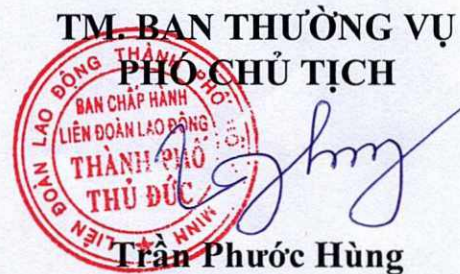 TM. BAN THƯỜNG VỤ
PHÓ CHỦ TỊCH
LIÊN ĐOÀN LAO ĐỘNG THÀNH PHỐ HỒ CHÍ MINH
BAN CHẤP HÀNH
LIÊN ĐOÀN LAO ĐỘNG
THÀNH PHỐ
THỦ ĐỨC
Trần Phước Hùng